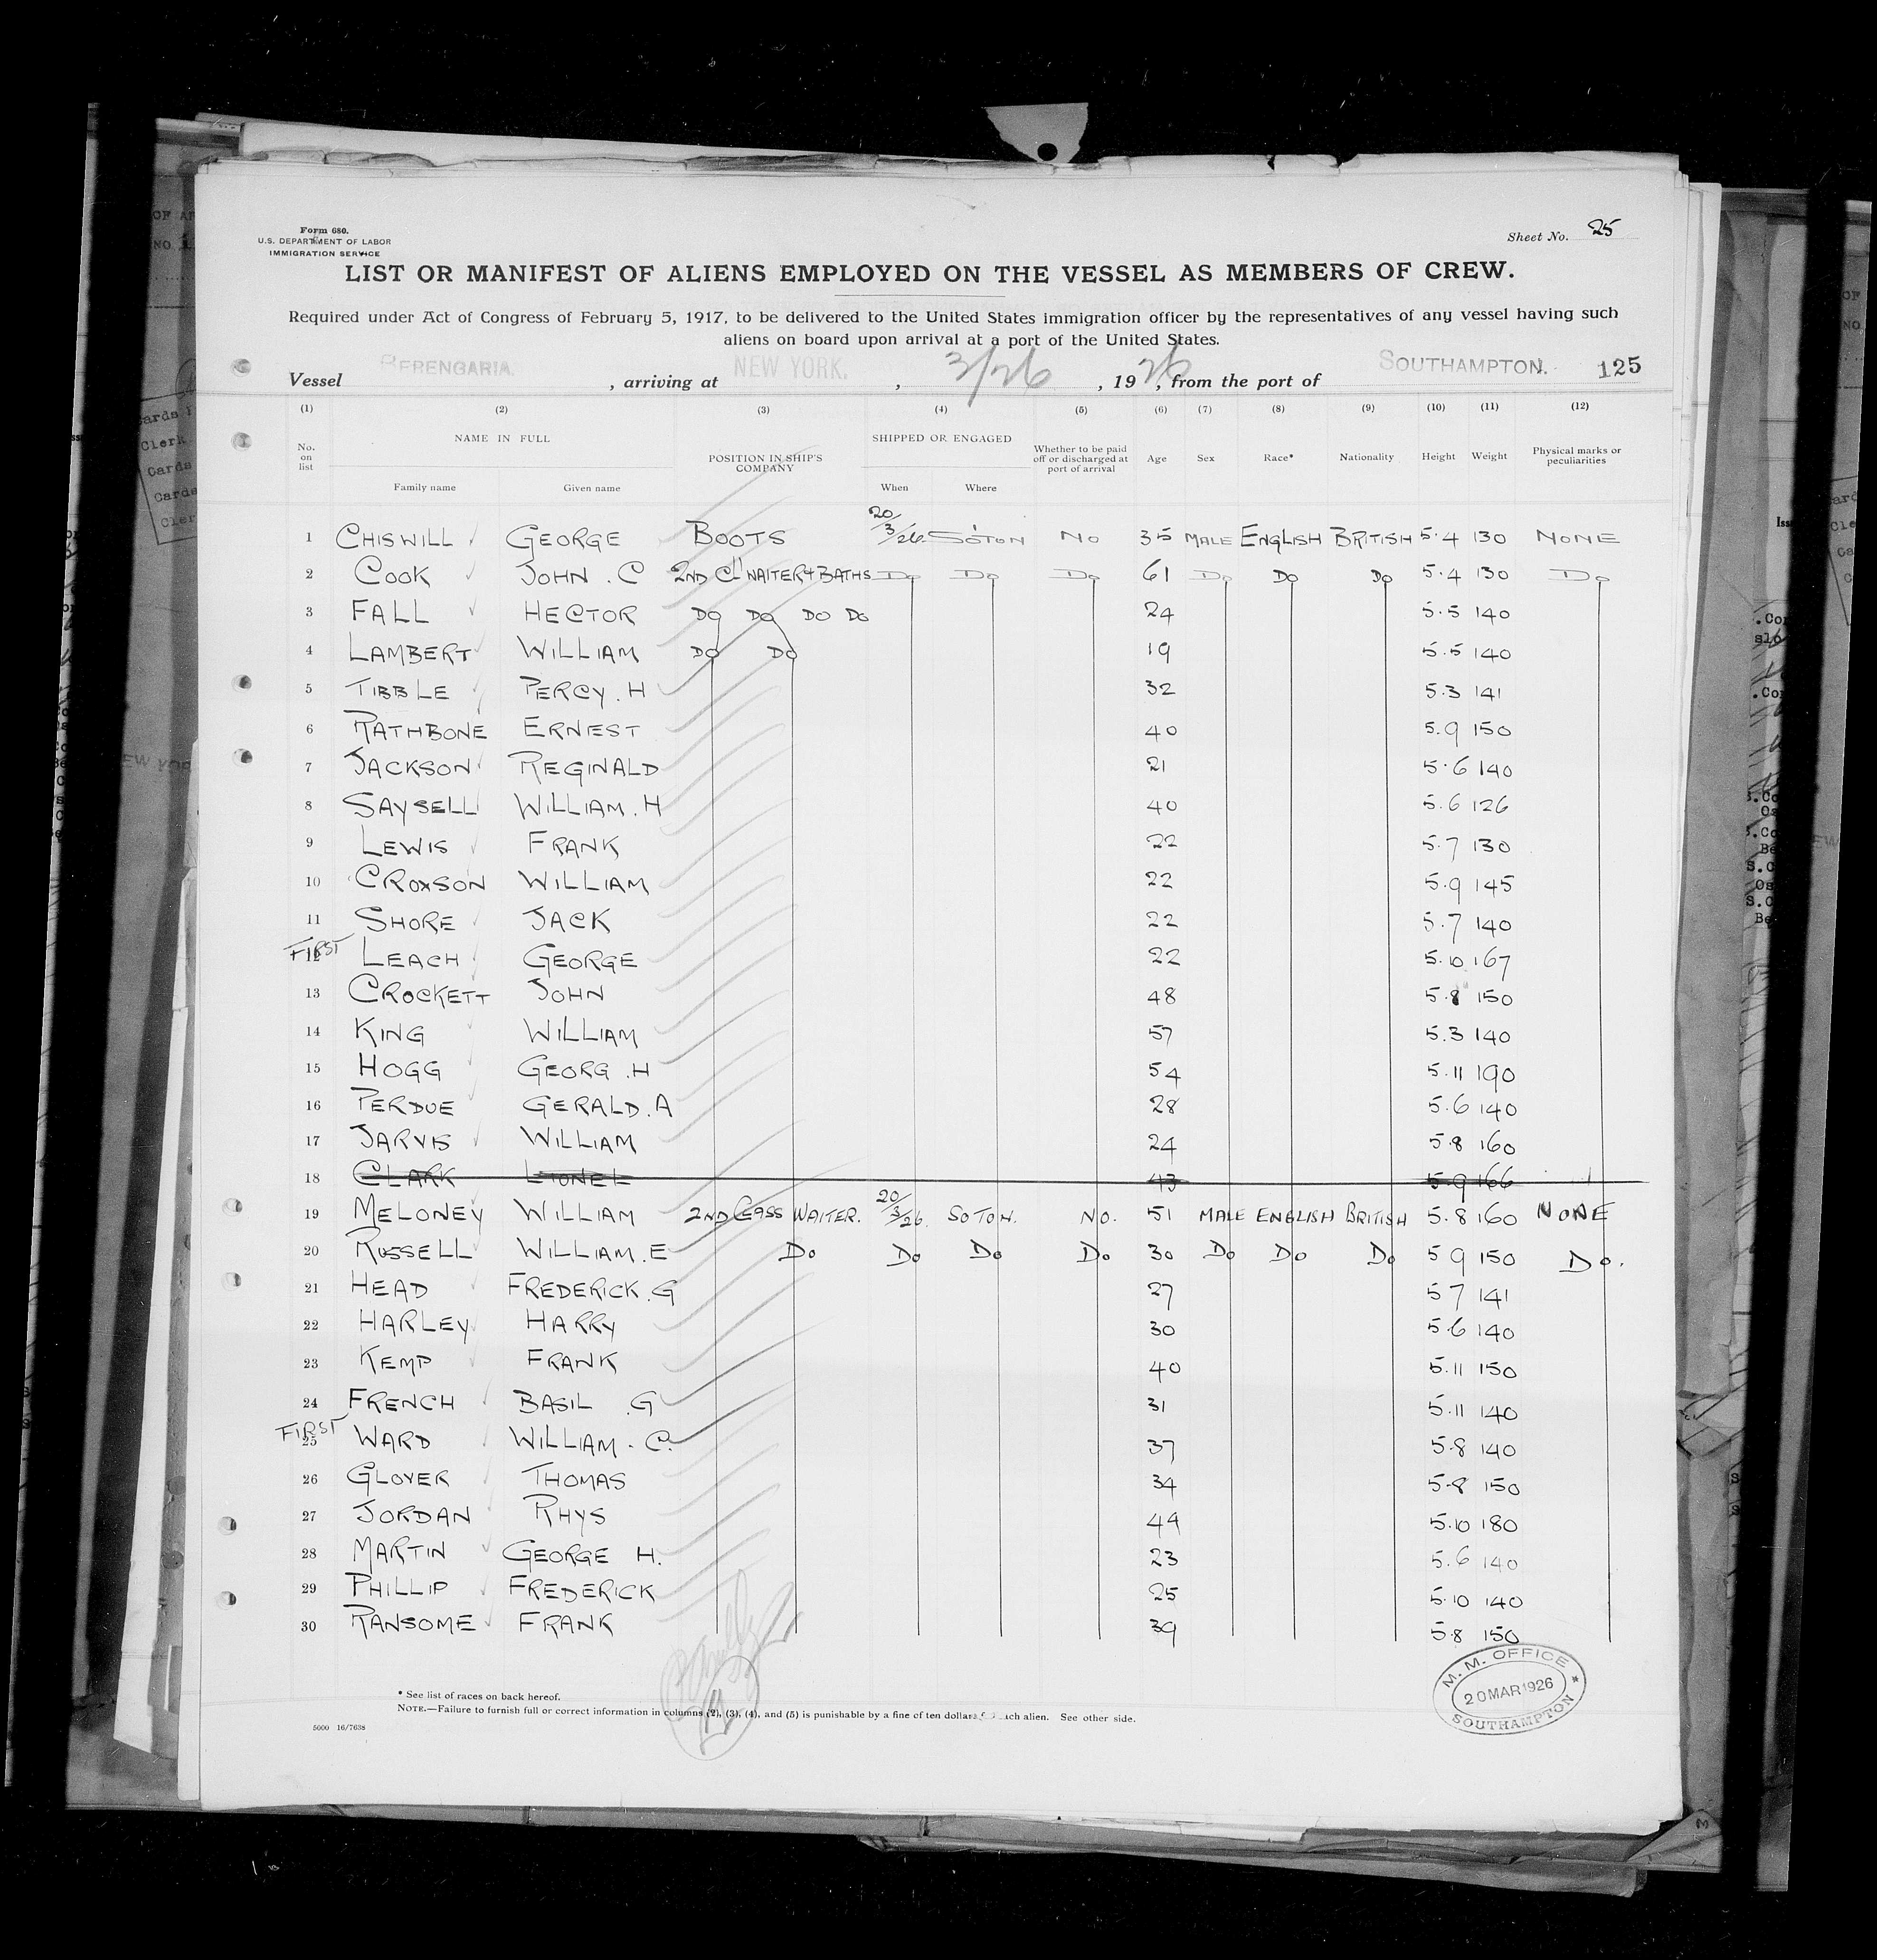 Form 680.
U.S. DEPARTMENT OF LABOR
IMMIGRATION SERVICE
Sheet No. 25
LIST OR MANIFEST OF ALIENS EMPLOYED ON THE VESSEL AS MEMBERS OF CREW.
Required under Act of Congress of February 5, 1917, to be delivered to the United States immigration officer by the representatives of any vessel having such
aliens on board upon arrival at a port of the United States.
Vessel BERENGARIA. , arriving at NEW YORK. , 3/26 , 1926 , from the port of SOUTHAMPTON. 125
(1) (2) (3) (4) (5) (6) (7) (8) (9) (10) (11) (12)
No. on list NAME IN FULL Family name Given name POSITION IN SHIP'S COMPANY SHIPPED OR ENGAGED When Where Whether to be paid off or discharged at port of arrival Age Sex Race* Nationality Height Weight Physical marks or peculiarities
1 CHISWILL GEORGE BOOTS 20/3/26. SOTON NO 35 MALE ENGLISH BRITISH 5.4 130 NONE
2 COOK JOHN . C 2ND CL WAITER & BATHS Do Do Do 61 Do Do Do 5.4 130 Do
3 FALL HECTOR Do Do Do Do 24 5.5 140
4 LAMBERT WILLIAM Do Do 19 5.5 140
5 TIBBLE PERCY . H 32 5.3 141
6 RATHBONE ERNEST 40 5.9 150
7 JACKSON REGINALD 21 5.6 140
8 SAYSELL WILLIAM . H 40 5.6 126
9 LEWIS FRANK 22 5.7 130
10 CROXSON WILLIAM 22 5.9 145
11 SHORE JACK 22 5.7 140
FIRST 12 LEACH GEORGE 22 5.10 167
13 CROCKETT JOHN 48 5.8 150
14 KING WILLIAM 57 5.3 140
15 HOGG GEORG . H 54 5.11 190
16 PERDUE GERALD . A 28 5.6 140
17 JARVIS WILLIAM 24 5.8 160
18 CLARK LIONEL 43 5.9 166
19 MELONEY WILLIAM 2ND CLASS WAITER. 20/3/26. SOTON. NO. 51 MALE ENGLISH BRITISH 5.8 160 NONE
20 RUSSELL WILLIAM . E Do Do Do Do 30 Do Do Do 5 9 150 Do.
21 HEAD FREDERICK . G 27 5 7 141
22 HARLEY HARRY 30 5.6 140
23 KEMP FRANK 40 5.11 150
24 FRENCH BASIL . G 31 5.11 140
FIRST 25 WARD WILLIAM . C. 37 5.8 140
26 GLOVER THOMAS 34 5.8 150
27 JORDAN RHYS 44 5.10 180
28 MARTIN GEORGE H. 23 5.6 140
29 PHILLIP FREDERICK 25 5.10 140
30 RANSOME FRANK 39 5.8 150
M. M. OFFICE
20 MAR 1926
SOUTHAMPTON
* See list of races on back hereof.
NOTE.—Failure to furnish full or correct information in columns (2), (3), (4), and (5) is punishable by a fine of ten dollars each alien. See other side.
5000 16/7638